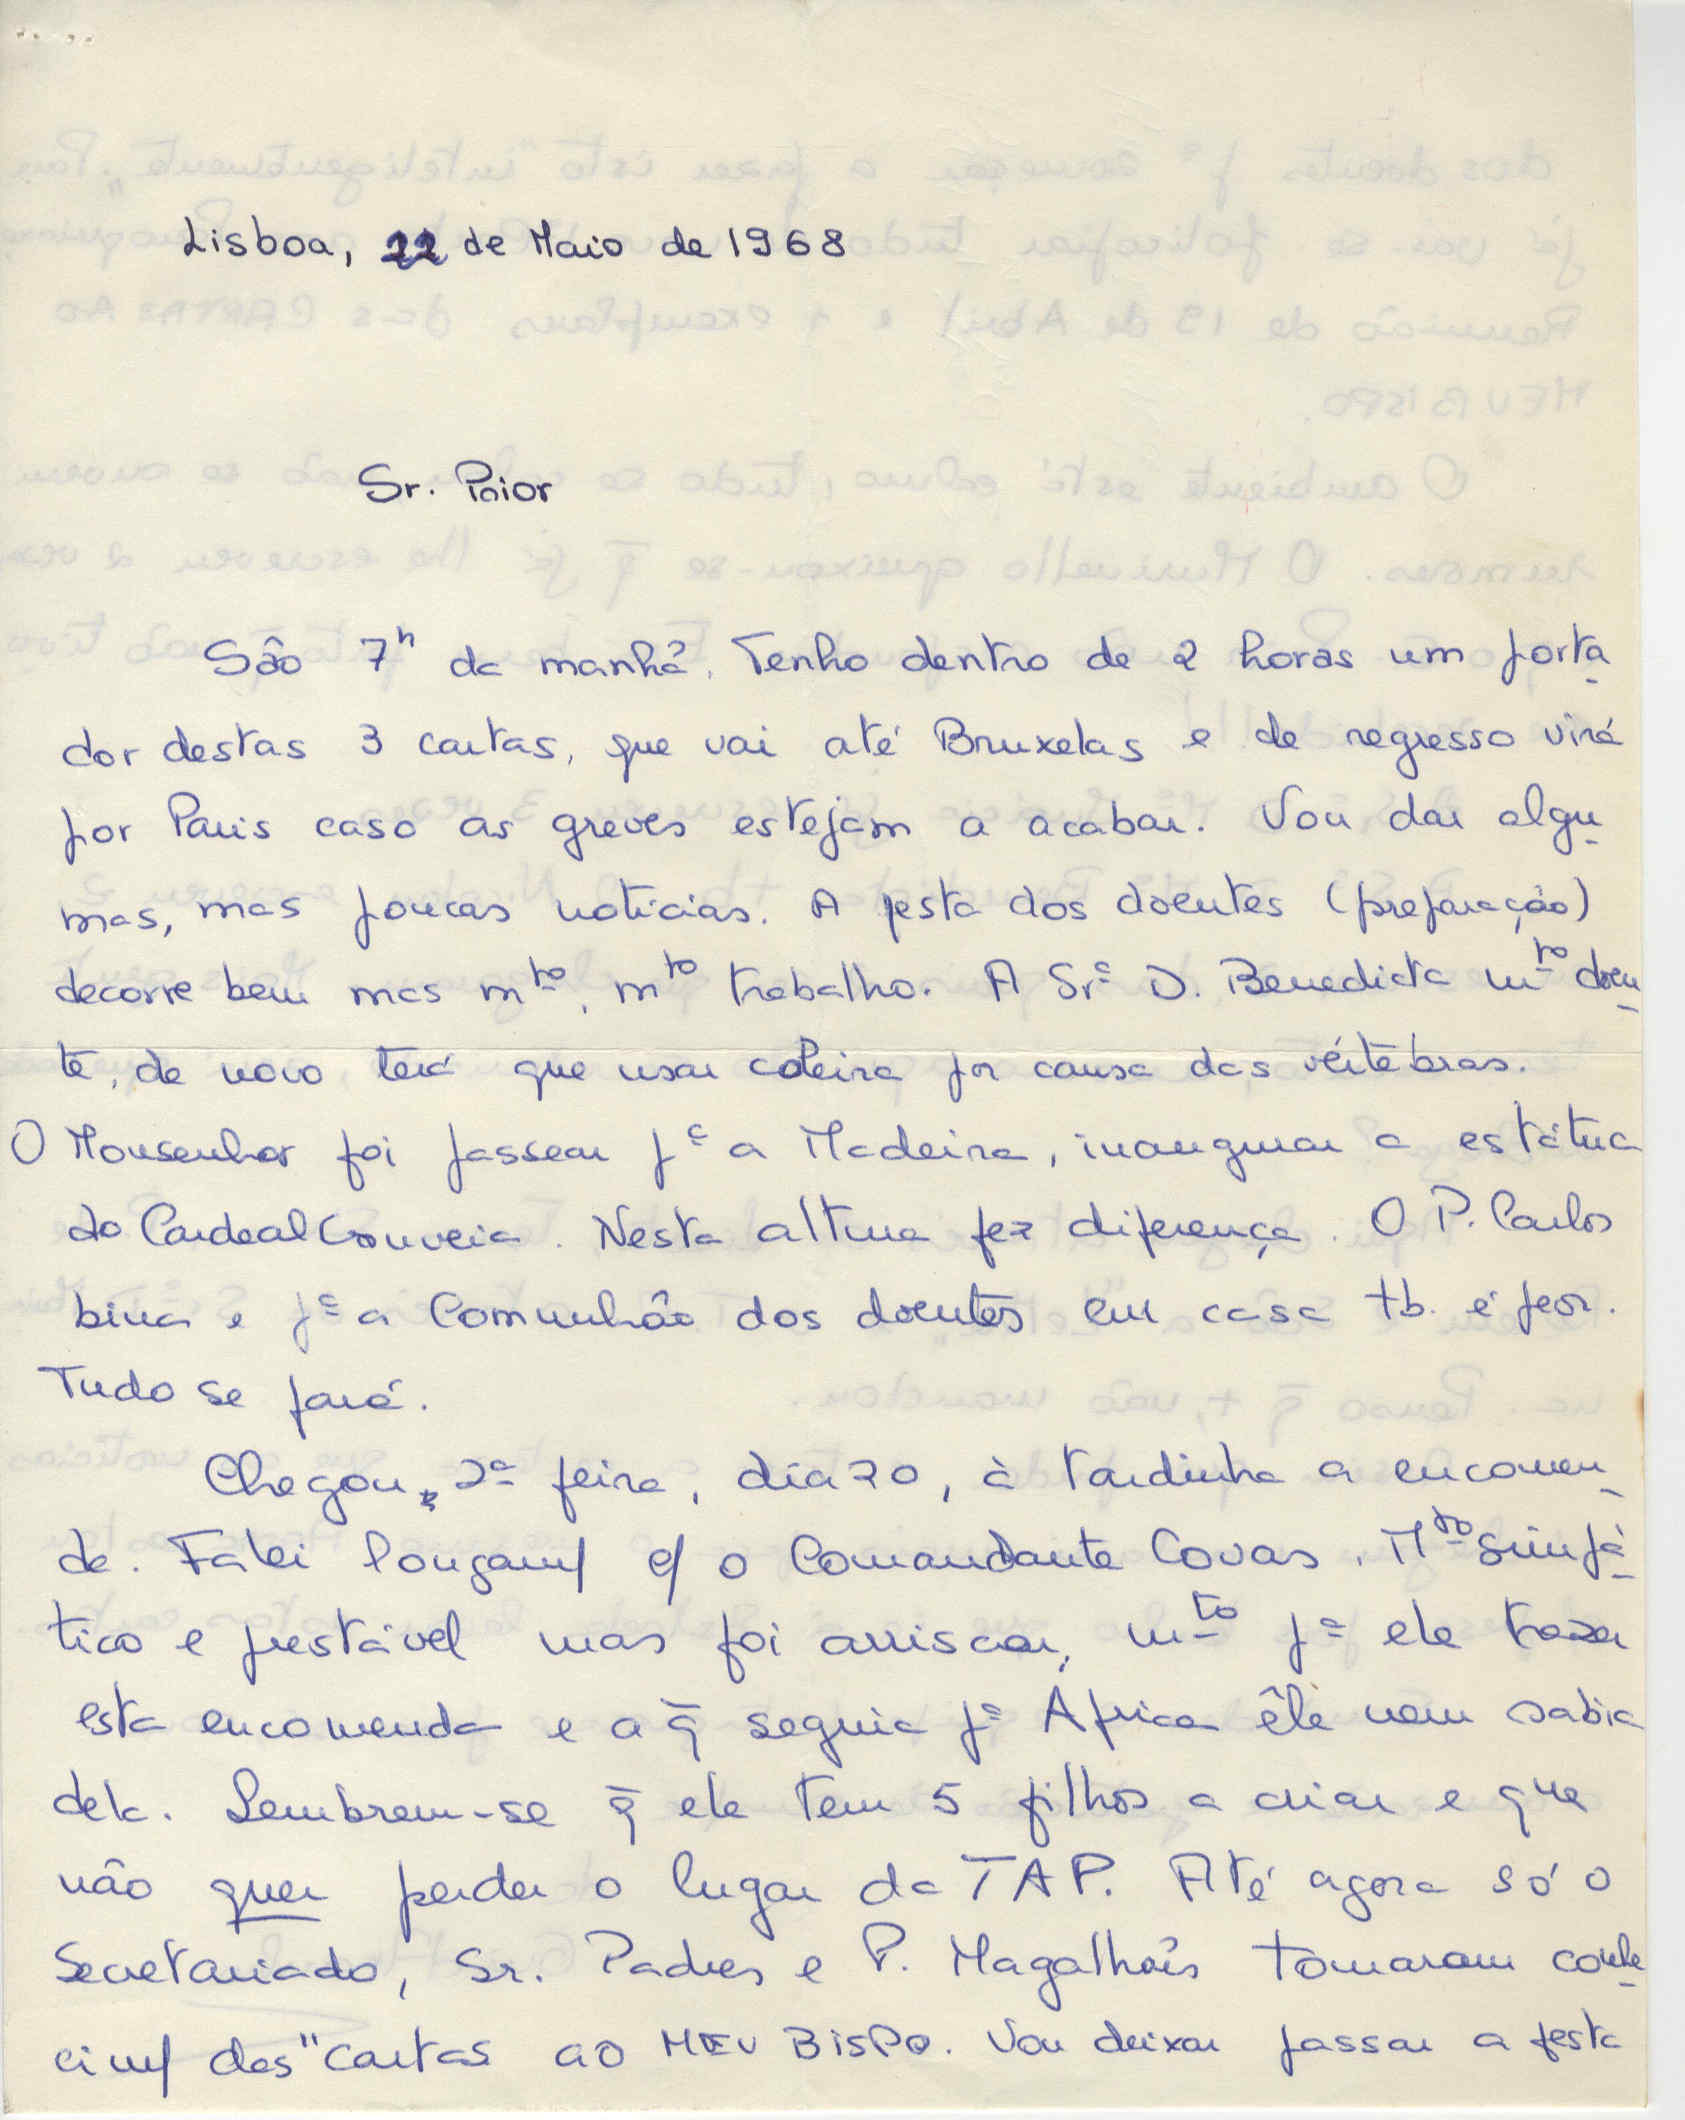 Lisboa, 22 de Maio de 1968
Sr. Prior
São 7h da manhã. Tenho dentro de 2 horas um porta
dor destas 3 cartas, que vai até Bruxelas e de regresso virá
por Paris caso as greves estejam a acabar. Vou dar algu
mas, mas poucas notícias. A festa dos doentes (preparação)
decorre bem mas mto, mto trabalho. A Srª D. Benedicta mto doen
te, de novo terá que usar coleira por causa das vértebras.
O Monsenhor foi passear pª a Madeira, inaugurar a estátua
do Cardeal Gouveia. Nesta altura fez diferença. O P. Carlos
bina e pª a Comunhão dos doentes em casa tb. é peor.
Tudo se fará.
Chegou, 2ª feira, dia 20, à tardinha a encomen
da. Falei longam/ c/ o Comandante Covas. Mto simpá
tico e prestável mas foi arriscar, mto pª ele trazer
esta encomenda e a q̄ seguia pª África êle nem sabia
dela. Lembrem-se q̄ ele tem 5 filhos a criar e que
não quer perder o lugar da TAP. Até agora só o
Secretariado, Sr. Padres e P. Magalhães tomaram conhe
cim/ das "cartas ao MEU BISPO. Vou deixar passar a festa